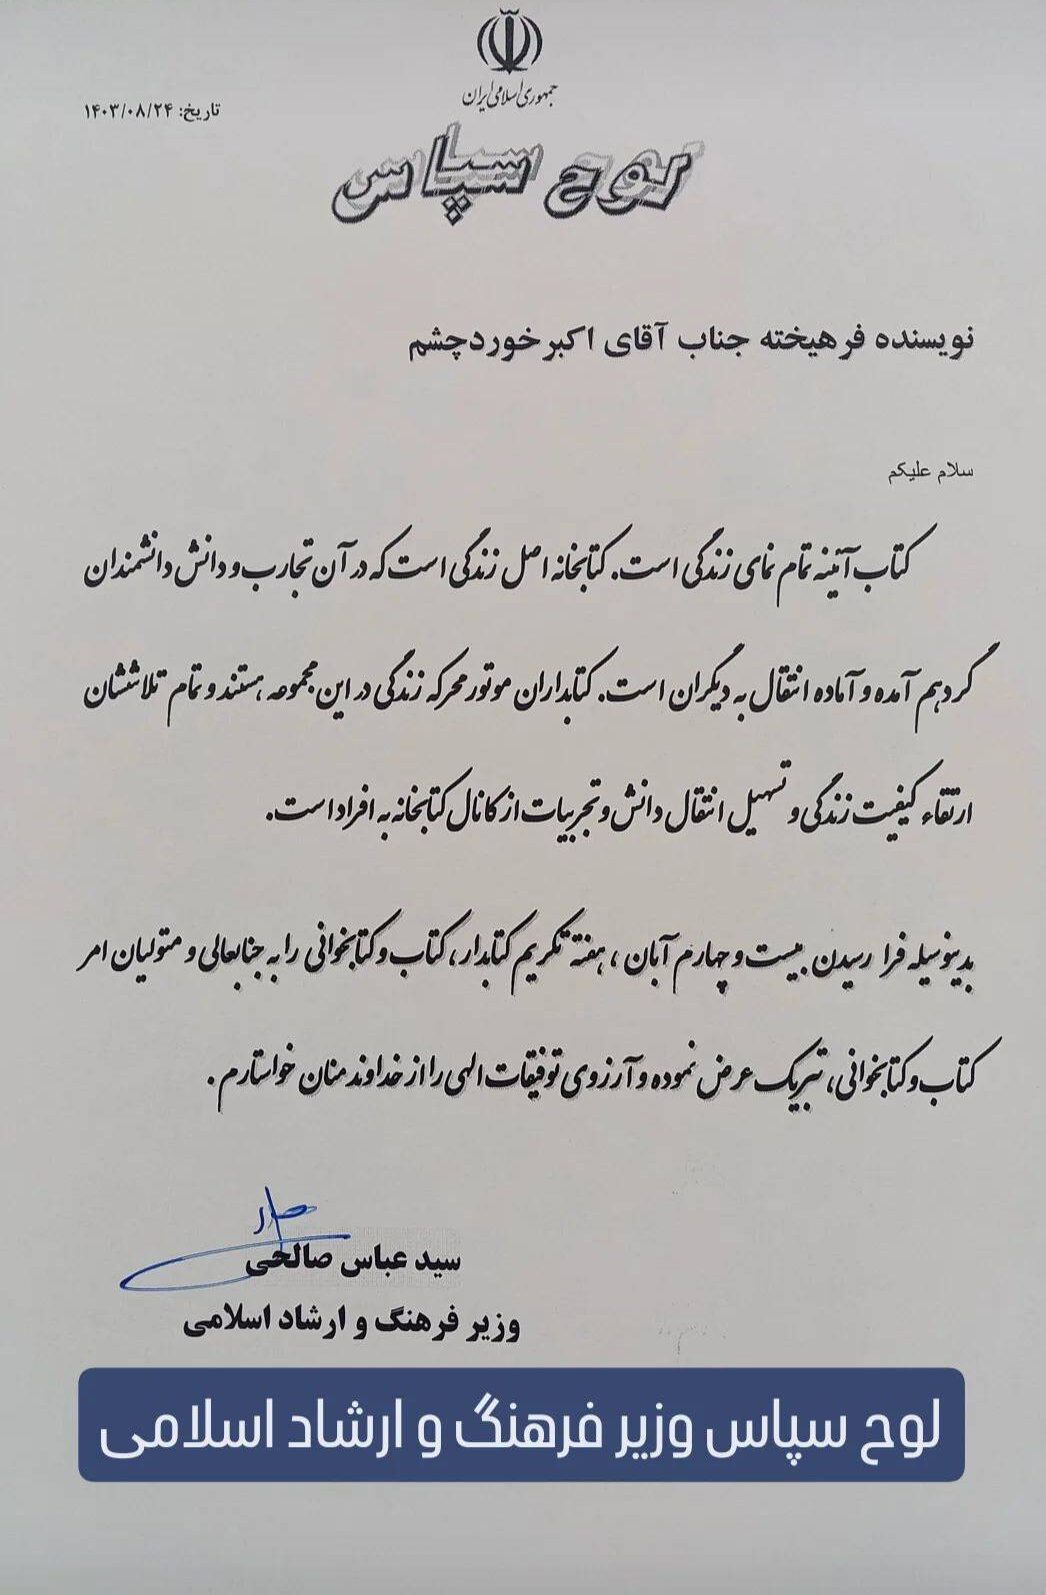 جمهوری اسلامی ایران
تاریخ: ۱۴۰۳/۰۸/۲۴
لوح سپاس
نویسنده فرهیخته جناب آقای اکبر خوردچشم
سلام علیکم
کتاب آئینه تمام نمای زندگی است. کتابخانه اصل زندگی است که در آن تجارب و دانش دانشمندان
گردهم آمده و آماده انتقال به دیگران است. کتابداران موتور محرکه زندگی در این مجموعه هستند و تمام تلاششان
ارتقاء کیفیت زندگی و تسهیل انتقال دانش و تجربیات از کانال کتابخانه به افراد است.
بدینوسیله فرا رسیدن بیست و چهارم آبان، هفته تکریم کتابدار، کتاب و کتابخوانی را به جنابعالی و متولیان امر
کتاب و کتابخوانی، تبریک عرض نموده و آرزوی توفیقات الهی را از خداوند منان خواستارم.
سید عباس صالحی
وزیر فرهنگ و ارشاد اسلامی
لوح سپاس وزیر فرهنگ و ارشاد اسلامی